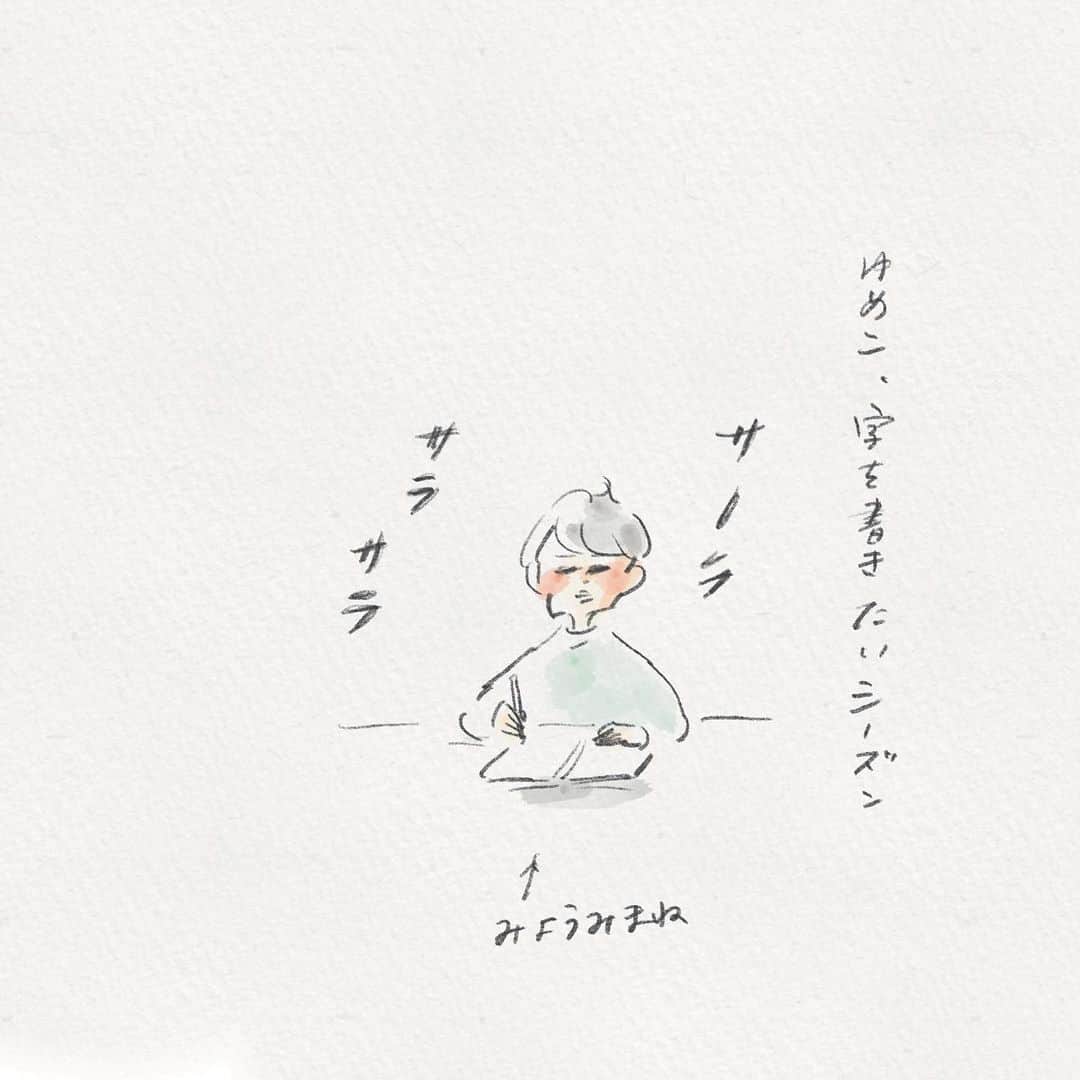 ゆめこ、字を書きたいシーズン
サーラ
サラ
サラ
みようみまね